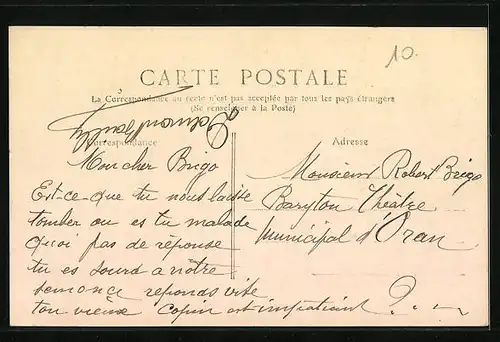 10.
CARTE POSTALE
La Correspondance au recto n'est pas acceptée par tous les pays étrangers
(Se renseigner à la Poste)
Correspondance
Adresse
Mon cher Brigo
Est-ce-que tu nous laisse
tomber ou es tu malade
quoi pas de réponse
tu es sourd a notre
semonce reponds vite
ton vieux Copin est impatient ? . _
Monsieur Robert Brigo
Baryton Théâtre
Municipal d'Oran